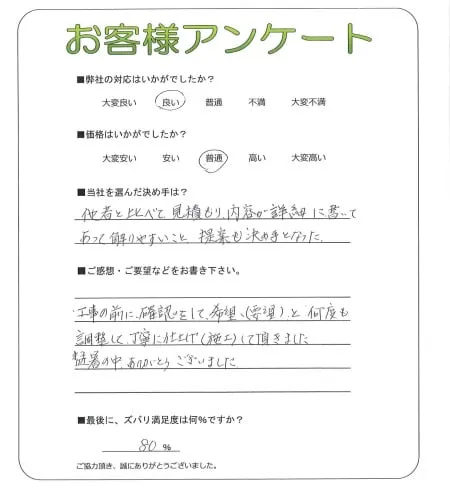 お客様アンケート
■弊社の対応はいかがでしたか?
大変良い 良い 普通 不満 大変不満
■価格はいかがでしたか?
大変安い 安い 普通 高い 大変高い
■当社を選んだ決め手は?
他者と比べて、見積もり、内容が詳細に書いて
あって解りやすいこと 提案も決め手となった。
■ご感想・ご要望などをお書き下さい。
工事の前に、確認をして、希望、(要望)と 何度も
調整して、丁寧に仕上げ(施工)して頂きました
猛暑の中、ありがとうございました
■最後に、ズバリ満足度は何%ですか?
80 %
ご協力頂き、誠にありがとうございました。